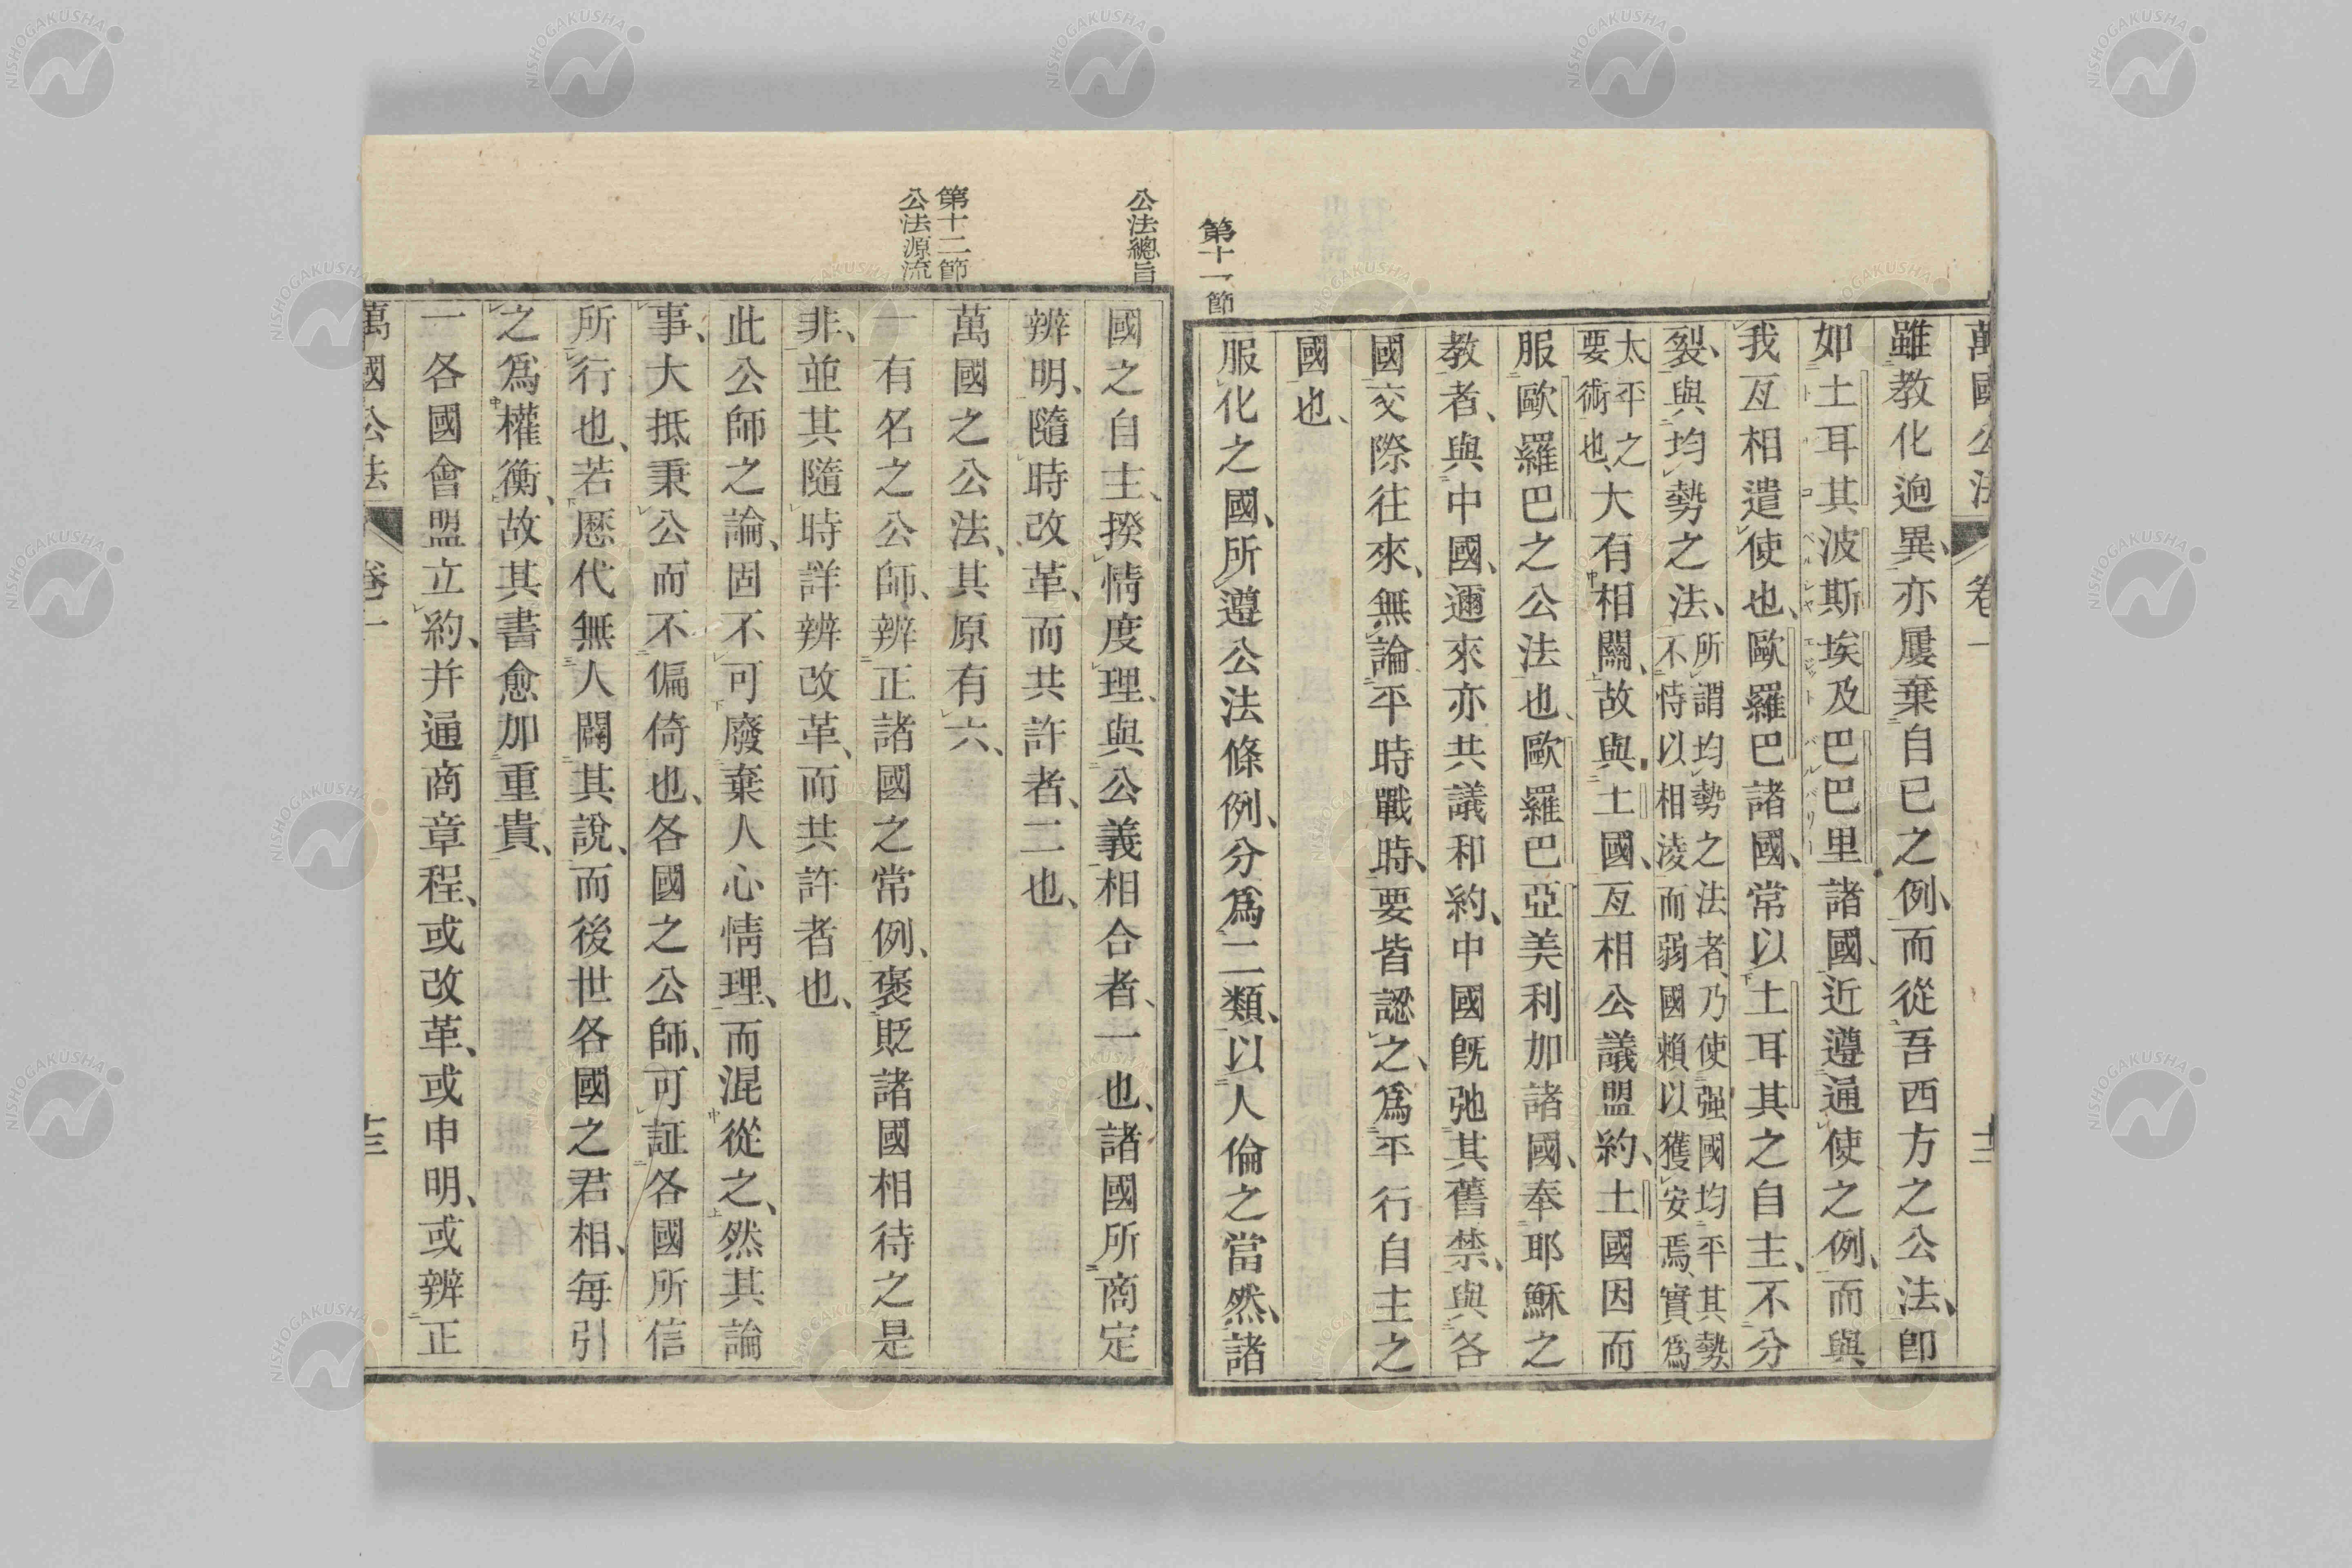 萬國公法 卷一 十二
雖教化迥異、亦屢棄自已之例、而從吾西方之公法、卽
如土耳其波斯埃及巴巴里諸國、近遵通使之例、而與
トルコ ペルシヤ エジット バルバリー
我互相遣使也、歐羅巴諸國、常以土耳其之自主、不分
裂、與均勢之法、所謂均勢之法者、乃使强國均平其勢
不恃以相淩而弱國賴以獲安焉、實爲
太平之
要術也、大有相關、故與土國、互相公議盟約、土國因而
服歐羅巴之公法也、歐羅巴亞美利加諸國、奉耶穌之
教者、與中國、邇來亦共議和約、中國旣弛其舊禁、與各
國交際往來、無論平時戰時、要皆認之、爲平行自主之
國也、
第十一節
服化之國、所遵公法條例、分爲二類、以人倫之當然、諸
公法總旨
國之自主、揆情度理、與公義相合者、一也、諸國所商定
辨明、隨時改革、而共許者、二也、
第十二節
公法源流
萬國之公法、其原有六、
一有名之公師、辨正諸國之常例、褒貶諸國相待之是
非、並其隨時詳辨改革、而共許者也、
此公師之論、固不可廢棄人心情理、而混從之、然其論
事、大抵秉公而不偏倚也、各國之公師、可証各國所信
所行也、若歷代無人闢其說、而後世各國之君相、每引
之爲權衡、故其書愈加重貴、
一各國會盟立約、并通商章程、或改革、或申明、或辨正
萬國公法 卷一 十三
NISHOGAKUSHA